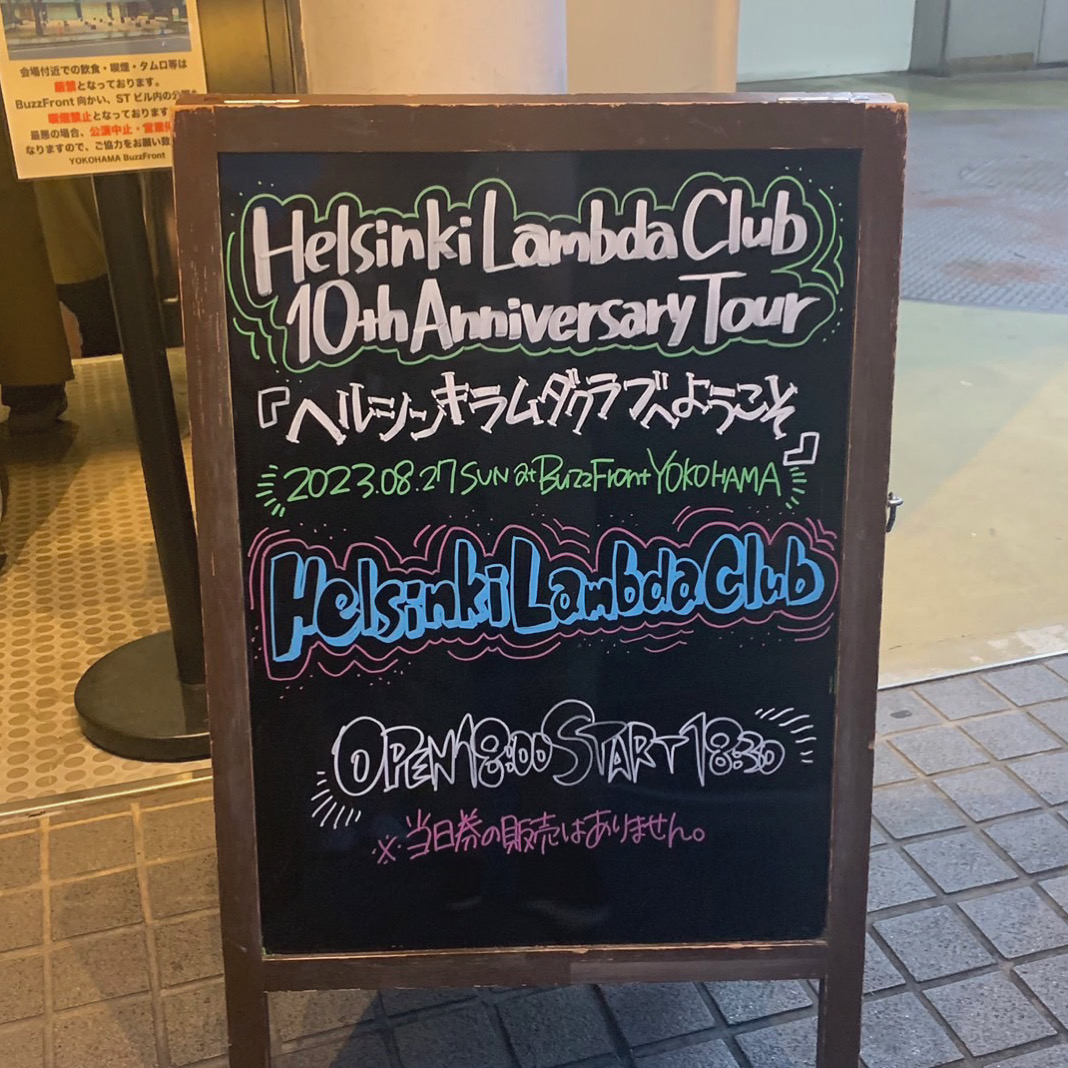 会場付近での飲食・喫煙・タムロ等は
厳禁となっております。
BuzzFront 向かい、ST ビル内の公開
喫煙禁止となっております
最悪の場合、公演中止・営業
なりますので、ご協力をお願い致
YOKOHAMA BuzzFront
Helsinki Lambda Club
10th Anniversary Tour
『ヘルシンキラムダクラブへようこそ』
2023.08.27 SUN at BuzzFront YOKOHAMA
Helsinki Lambda Club
OPEN 18:00 START 18:30
※当日券の販売はありません。